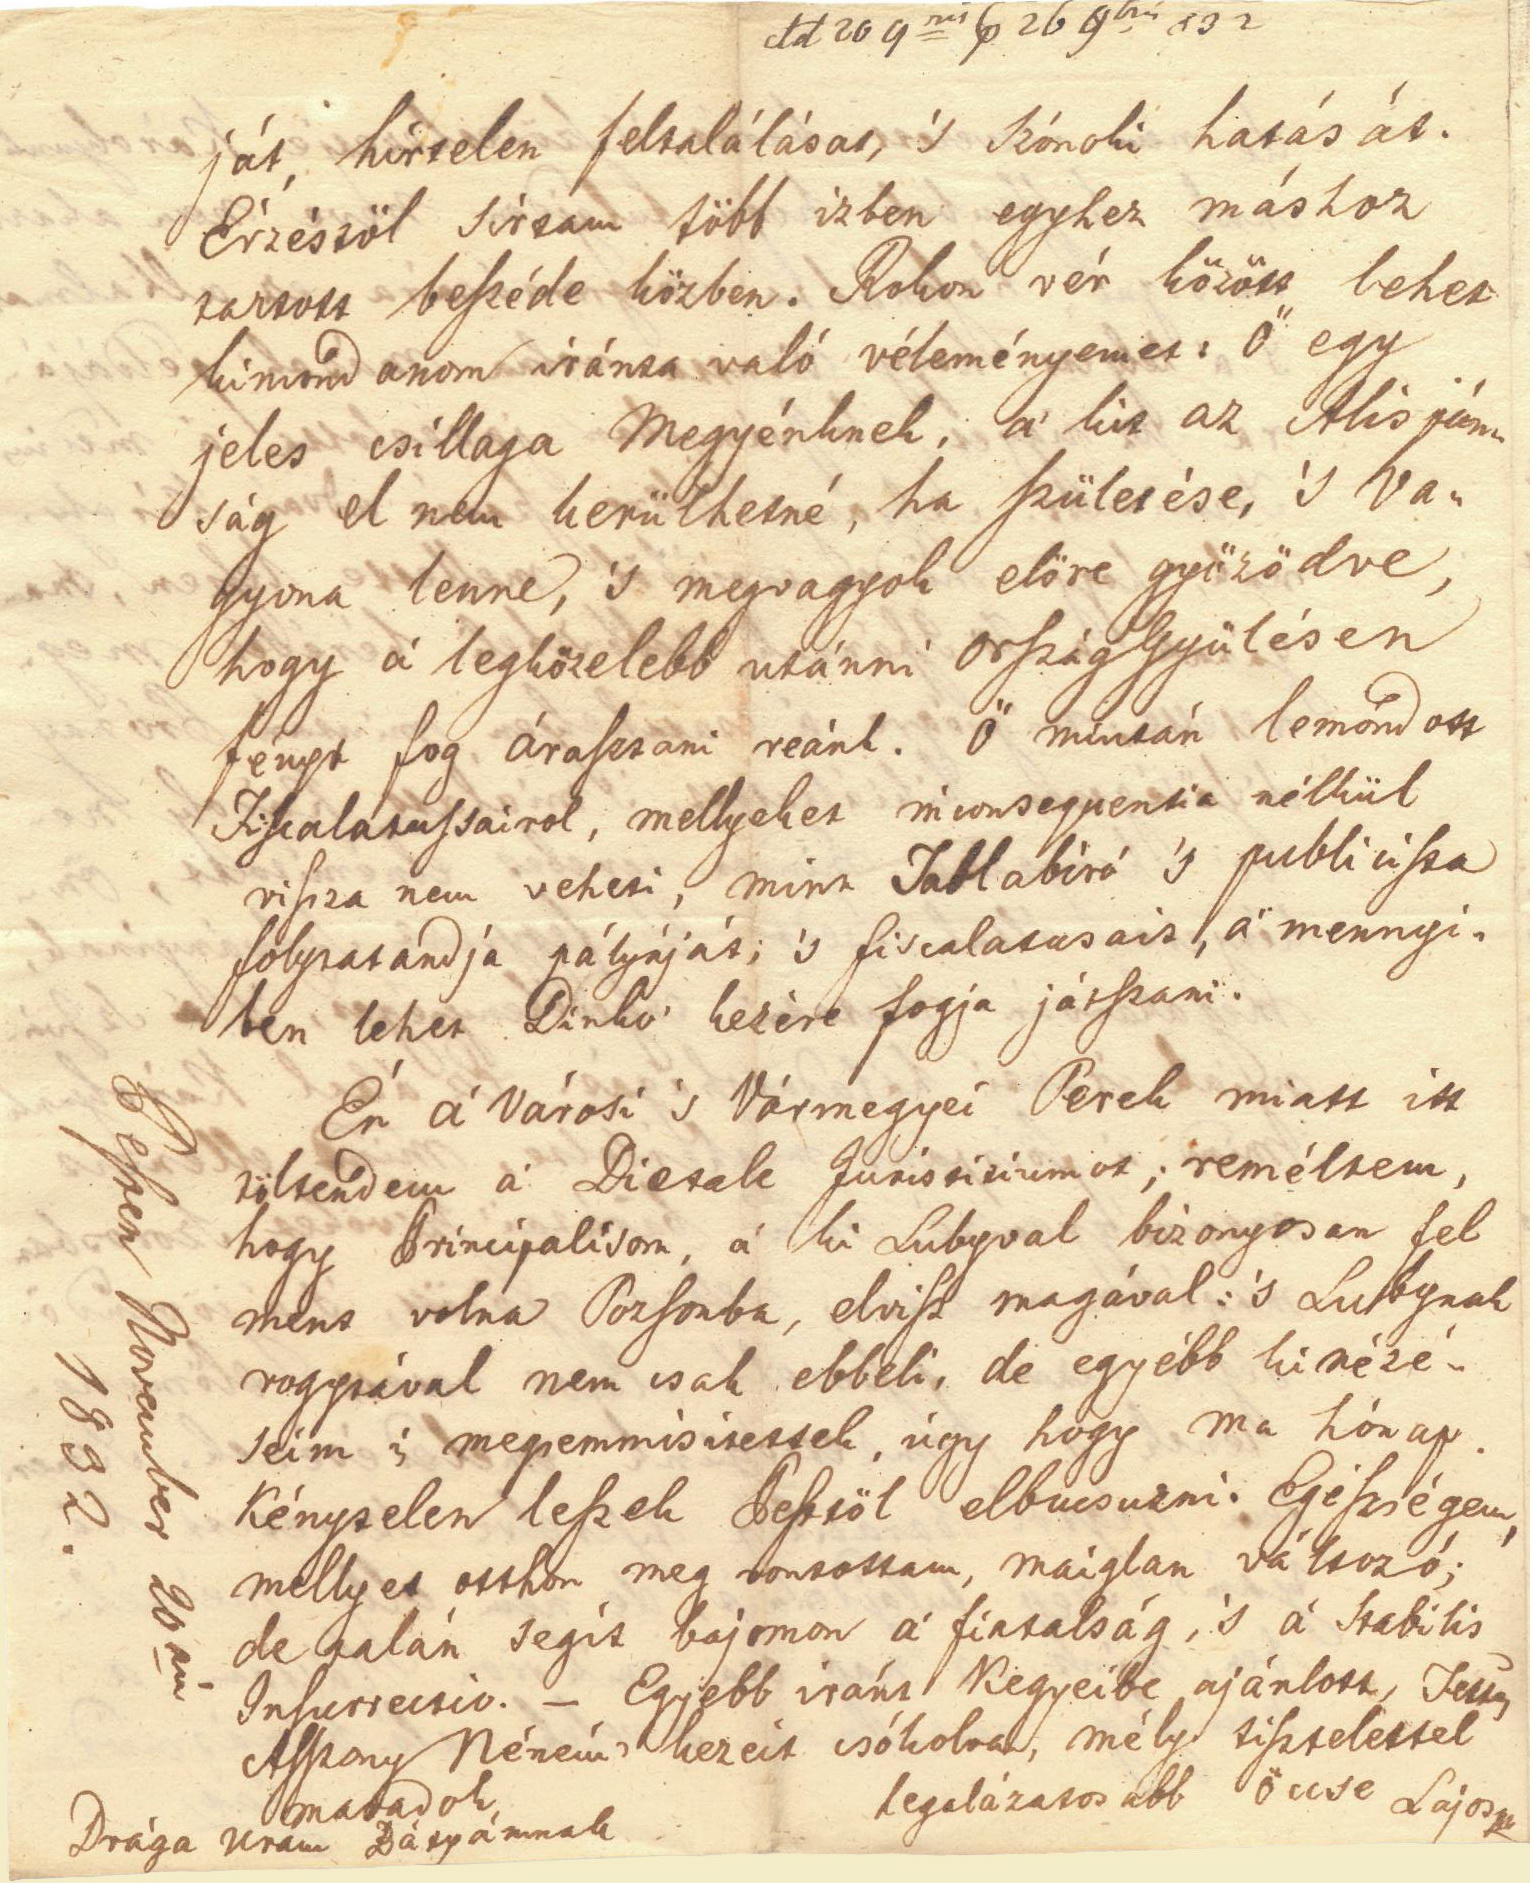 dd 20 9ris p 26 9bris 832
ját, hirtelen feltalálását, 's szónoki hatását.
Érzéstöl sirtam több izben egyhez máshoz
tartott beszéde közben. Rokon vér között lehet
kimondanom iránta való véleményemet: Ö egy
jeles csillaga Megyénknek, a' kit az Alispán-
ság el nem kerülhetné, ha születése, 's Va-
gyona lenne, 's megvagyok elöre gyözödve,
hogy a' legközelebb utánni Ország Gyülésen
fényt fog árasztani reánk. Ö miután lemondott
Fiscalatussairol, mellyeket inconsequentia nélkül
vissza nem veheti, mint Tablabiró 's publicista
folytatandja pályáját; 's fiscalatusait, a' mennyi-
ben lehet Dinkó kezére fogja játszani.
Én a' Városi 's Vármegyei Perek miatt itt
töltendem a' Dietale Juristitiumot; reméltem,
hogy Principalisom, a' ki Lubyval bizonyosan fel
ment volna Pozsonba, elvisz magával: 's Lubynak
rogytával nem csak ebbeli, de egyébb kinézé-
seim is megsemmisitettek, úgy hogy ma hónap
Kénytelen leszek Pesttöl elbucsuzni. Egésségem,
mellyet otthon meg rontottam, maiglan változó;
de talán segit bajomon a' fiatalság, 's a' Stabilis
Insurrectio. — Egyebb iránt Kegyeibe ajánlott, Tettes
Asszony Néném kezeit csókolva, mély tisztelettel
maradok
Drága Uram Bátyámnak
legalázatosabb öcsse Lajos
Pesten November 20án
1832.